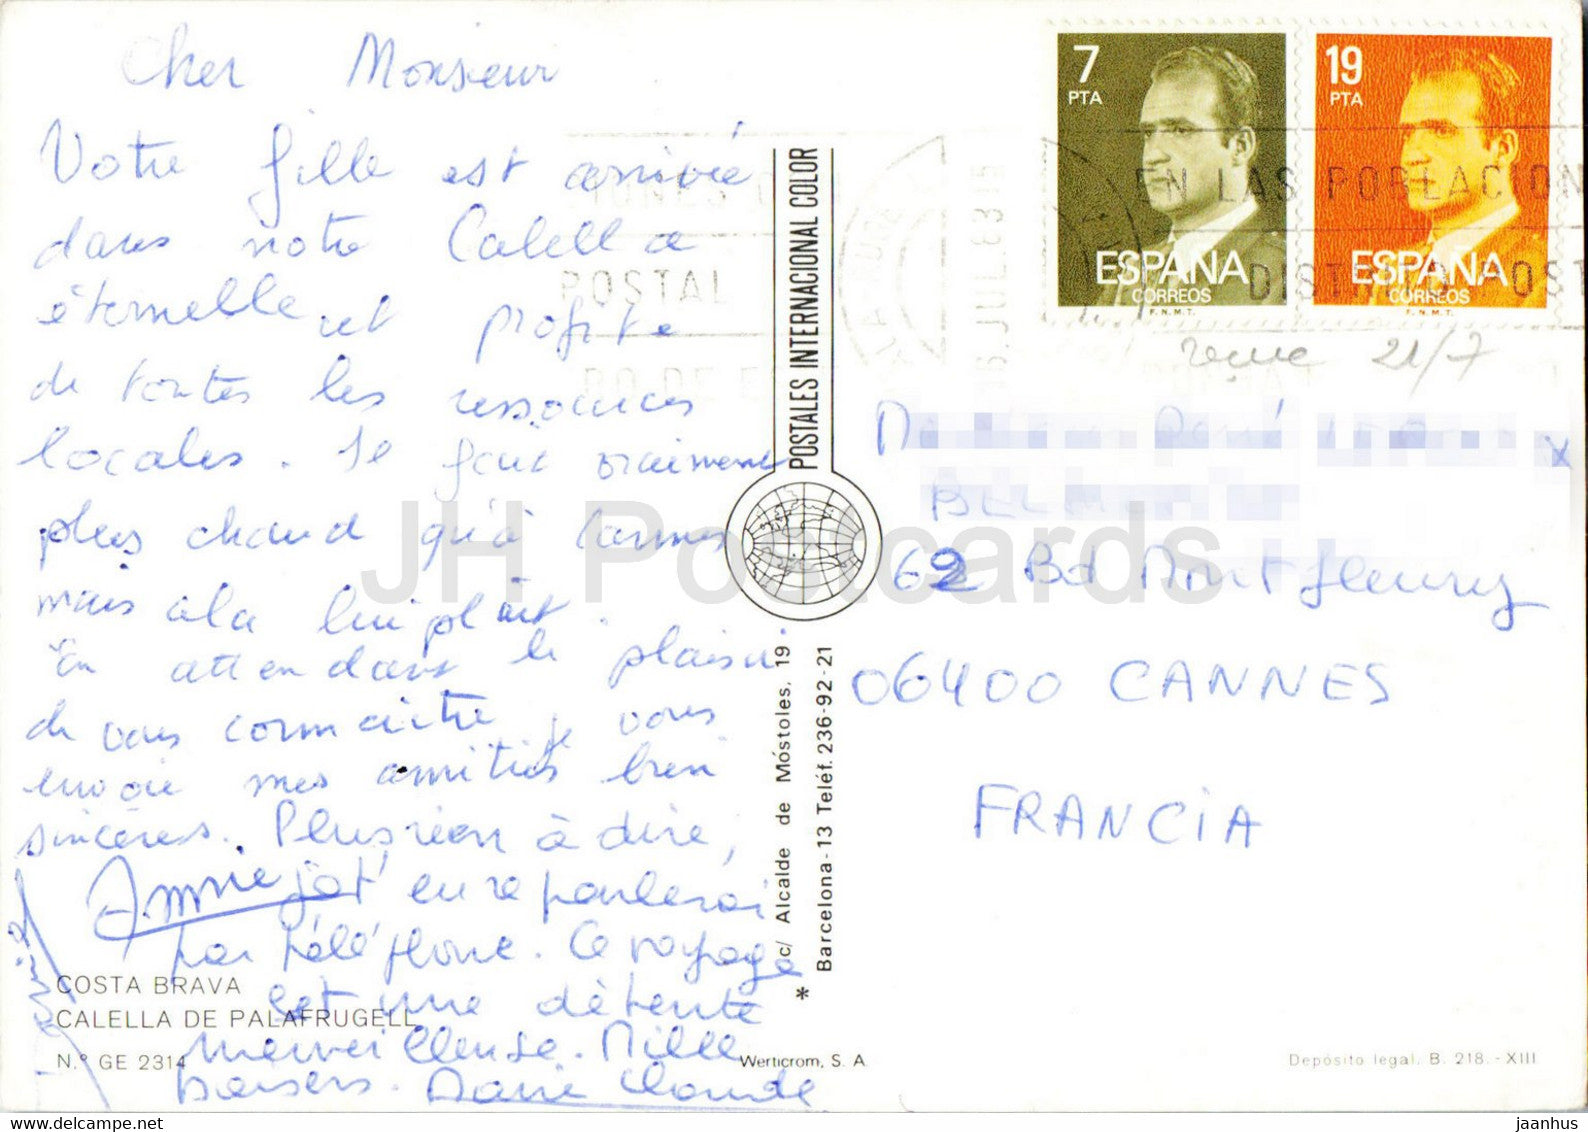 Cher Monsieur
Votre fille est arrivée
dans notre Calella
éternelle et profite
de toutes les ressources
locales. Il fait vraiment
plus chaud qu'à Cannes
mais cela lui plaît.
En attendant le plaisir
de vous connaître je vous
envoie mes amitiés bien
sincères. Plus rien à dire,
Annie j't'en reparlerai
par téléphone. Ce voyage
est une détente
merveilleuse. Mille
baisers. Marie Claude
COSTA BRAVA
CALELLA DE PALAFRUGELL
N.° GE 2314
POSTALES INTERNACIONAL COLOR
c/ Alcalde de Móstoles, 19
Barcelona-13 Teléf. 236-92-21
*
Werticrom, S. A.
7
PTA
ESPAÑA
CORREOS
F.N.M.T.
19
PTA
ESPAÑA
CORREOS
F.N.M.T.
EN LAS POBLACION
POSTAL
JUL. 83
reçue 21/7
62 Bd Montfleury
06400 CANNES
FRANCIA
Depósito legal. B. 218.-XIII
JH Postcards
delcampe.net
jaanhus